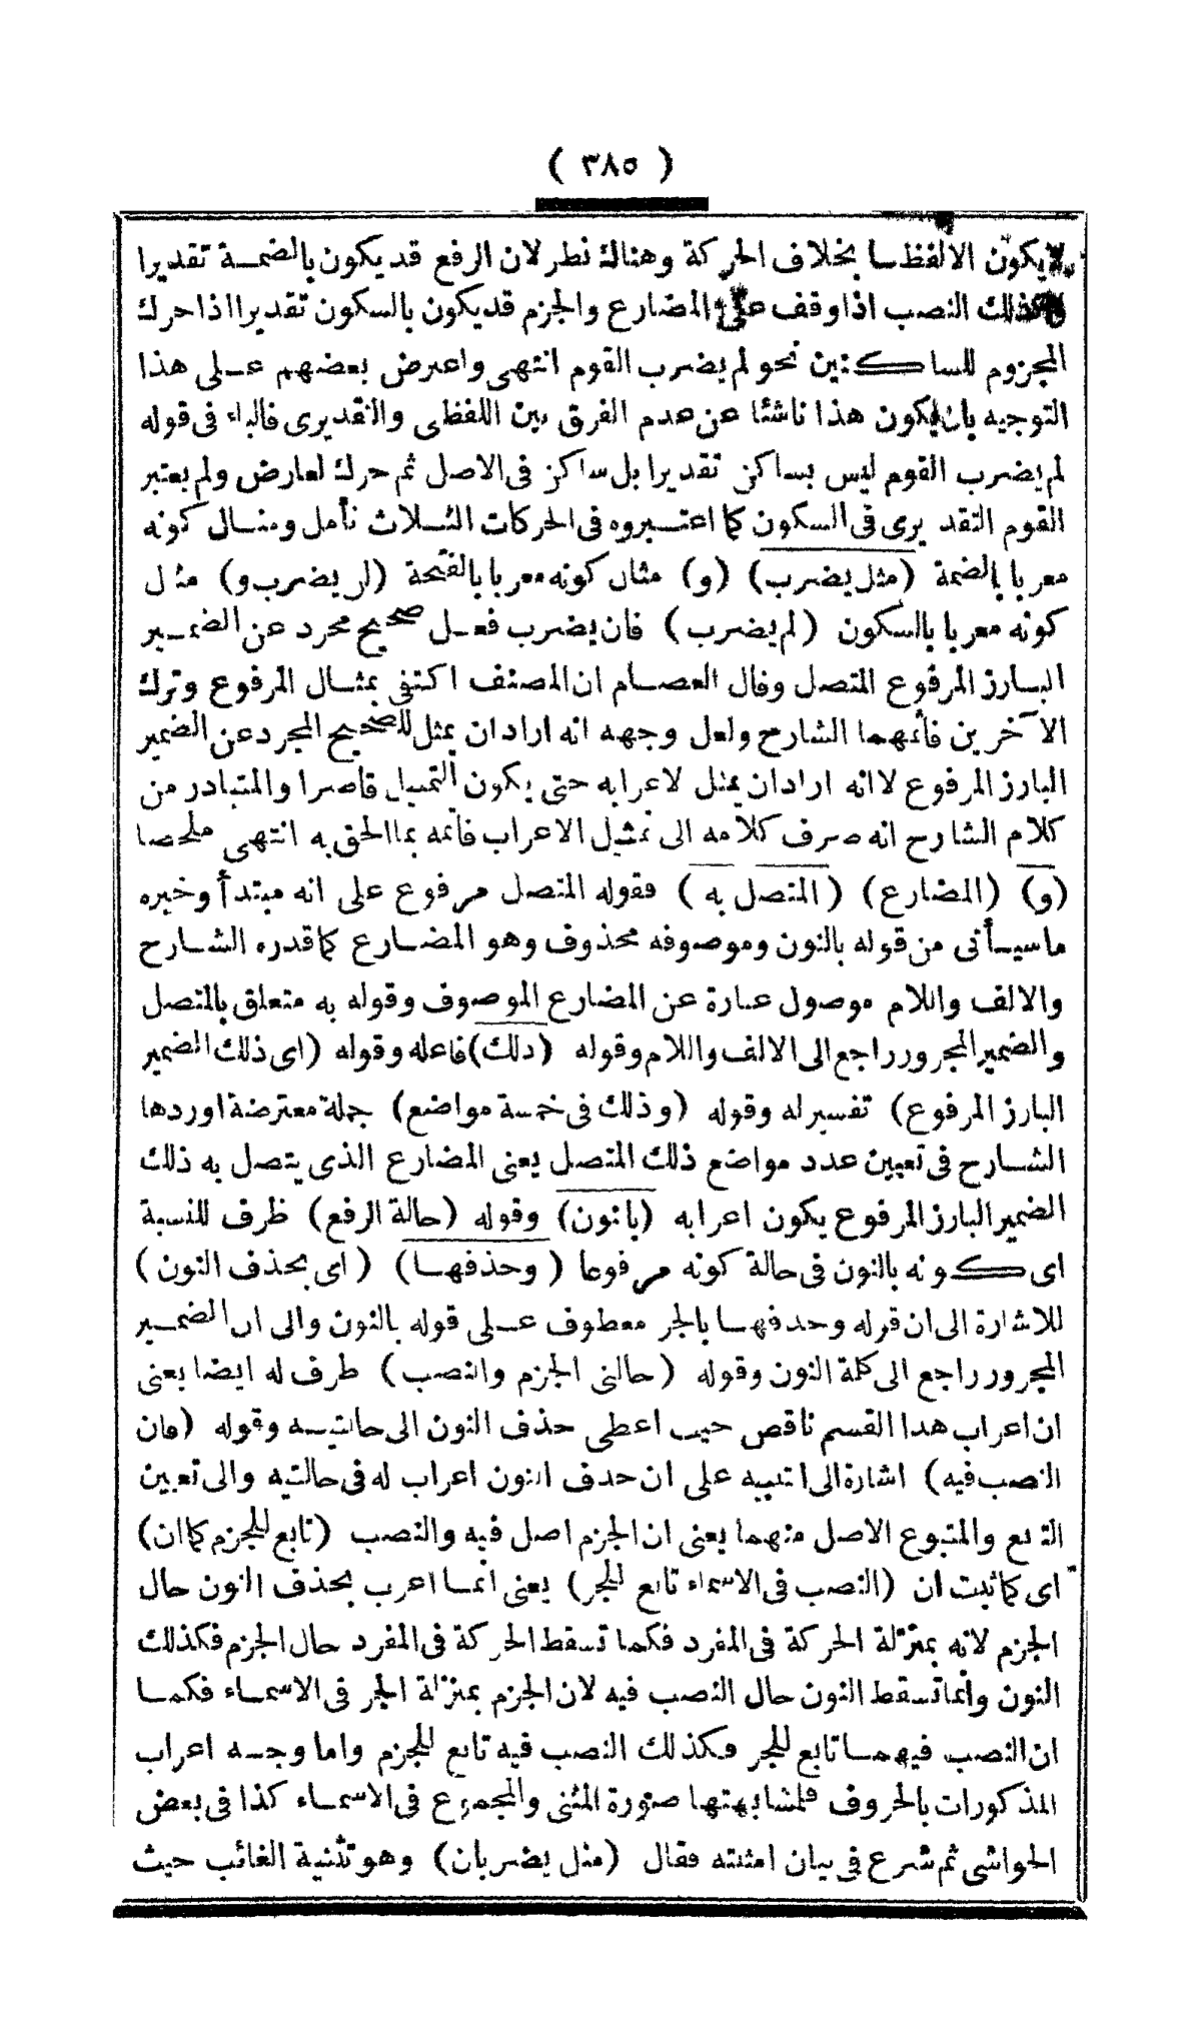 ( ٣٨٥ )
لا يكون الا لفظيا بخلاف الحركة وهناك نظر لان الرفع قد يكون بالضمة تقديرا
وكذلك النصب اذا وقف على المضارع والجزم قد يكون بالسكون تقديرا اذا حرك
المجزوم للساكنين نحو لم يضرب القوم انتهى واعترض بعضهم على هذا
التوجيه بان يكون هذا ناشئا عن عدم الفرق بين اللفظى والتقديرى فالباء فى قوله
لم يضرب القوم ليس بساكن تقديرا بل ساكن فى الاصل ثم حرك لعارض ولم يعتبر
القوم التقديرى فى السكون كما اعتبروه فى الحركات الثلاث تأمل ومثال كونه
معربا بالضمة (مثل يضرب) (و) مثال كونه معربا بالفتحة (لن يضرب و) مثل
كونه معربا بالسكون (لم يضرب) فان يضرب فعل صحيح مجرد عن الضمير
البارز المرفوع المتصل وقال العصام ان المصنف اكتفى بمثال المرفوع وترك
الآخرين فأتمهما الشارح ولعل وجهه انه اراد ان يمثل للصحيح المجرد عن الضمير
البارز المرفوع لا انه اراد ان يمثل لاعرابه حتى يكون التمثيل قاصرا والمتبادر من
كلام الشارح انه صرف كلامه الى تمثيل الاعراب فأتمه بما الحق به انتهى ملخصا
(و) (المضارع) (المتصل به) فقوله المتصل مرفوع على انه مبتدأ وخبره
ما سيأتى من قوله بالنون وموصوفه محذوف وهو المضارع كما قدره الشارح
والالف واللام موصول عبارة عن المضارع الموصوف وقوله به متعلق بالمتصل
والضمير المجرور راجع الى الالف واللام وقوله (ذلك) فاعله وقوله (اى ذلك الضمير
البارز المرفوع) تفسير له وقوله (وذلك فى خمسة مواضع) جملة معترضة اوردها
الشارح فى تعيين عدد مواضع ذلك المتصل يعنى المضارع الذى يتصل به ذلك
الضمير البارز المرفوع يكون اعرابه (بانون) وقوله (حالة الرفع) ظرف للنسبة
اى كونه بالنون فى حالة كونه مرفوعا (وحذفها) (اى بحذف النون)
للاشارة الى ان قوله وحذفها بالجر معطوف على قوله بالنون والى ان الضمير
المجرور راجع الى كلمة النون وقوله (حالتى الجزم والنصب) ظرف له ايضا يعنى
ان اعراب هذا القسم ناقص حيث اعطى حذف النون الى حالتيه وقوله (فان
النصب فيه) اشارة الى تنبيه على ان حذف النون اعراب له فى حالتيه والى تعيين
التابع والمتبوع الاصل منهما يعنى ان الجزم اصل فيه والنصب (تابع للجزم كما ان)
اى كما ثبت ان (النصب فى الاسماء تابع للجر) يعنى انما اعرب بحذف النون حال
الجزم لانه بمنزلة الحركة فى المفرد فكما تسقط الحركة فى المفرد حال الجزم فكذلك
النون وانما تسقط النون حال النصب فيه لان الجزم بمنزلة الجر فى الاسماء فكما
ان النصب فيهما تابع للجر فكذلك النصب فيه تابع للجزم واما وجه اعراب
المذكورات بالحروف فلمشابهتها صورة المثنى والمجموع فى الاسماء كذا فى بعض
الحواشى ثم شرع فى بيان امثلته فقال (مثل يضربان) وهو تثنية الغائب حيث